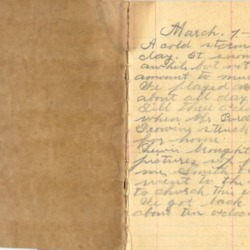 March. 7-
A cold storm
day. It snow
awhile but not
amount to mu
We played
about all day
till
when Mr. Bird
Growing
for home.
Lewis brought
pictures up
me. Smith
went to the
to church this
We got back
about ten oclock